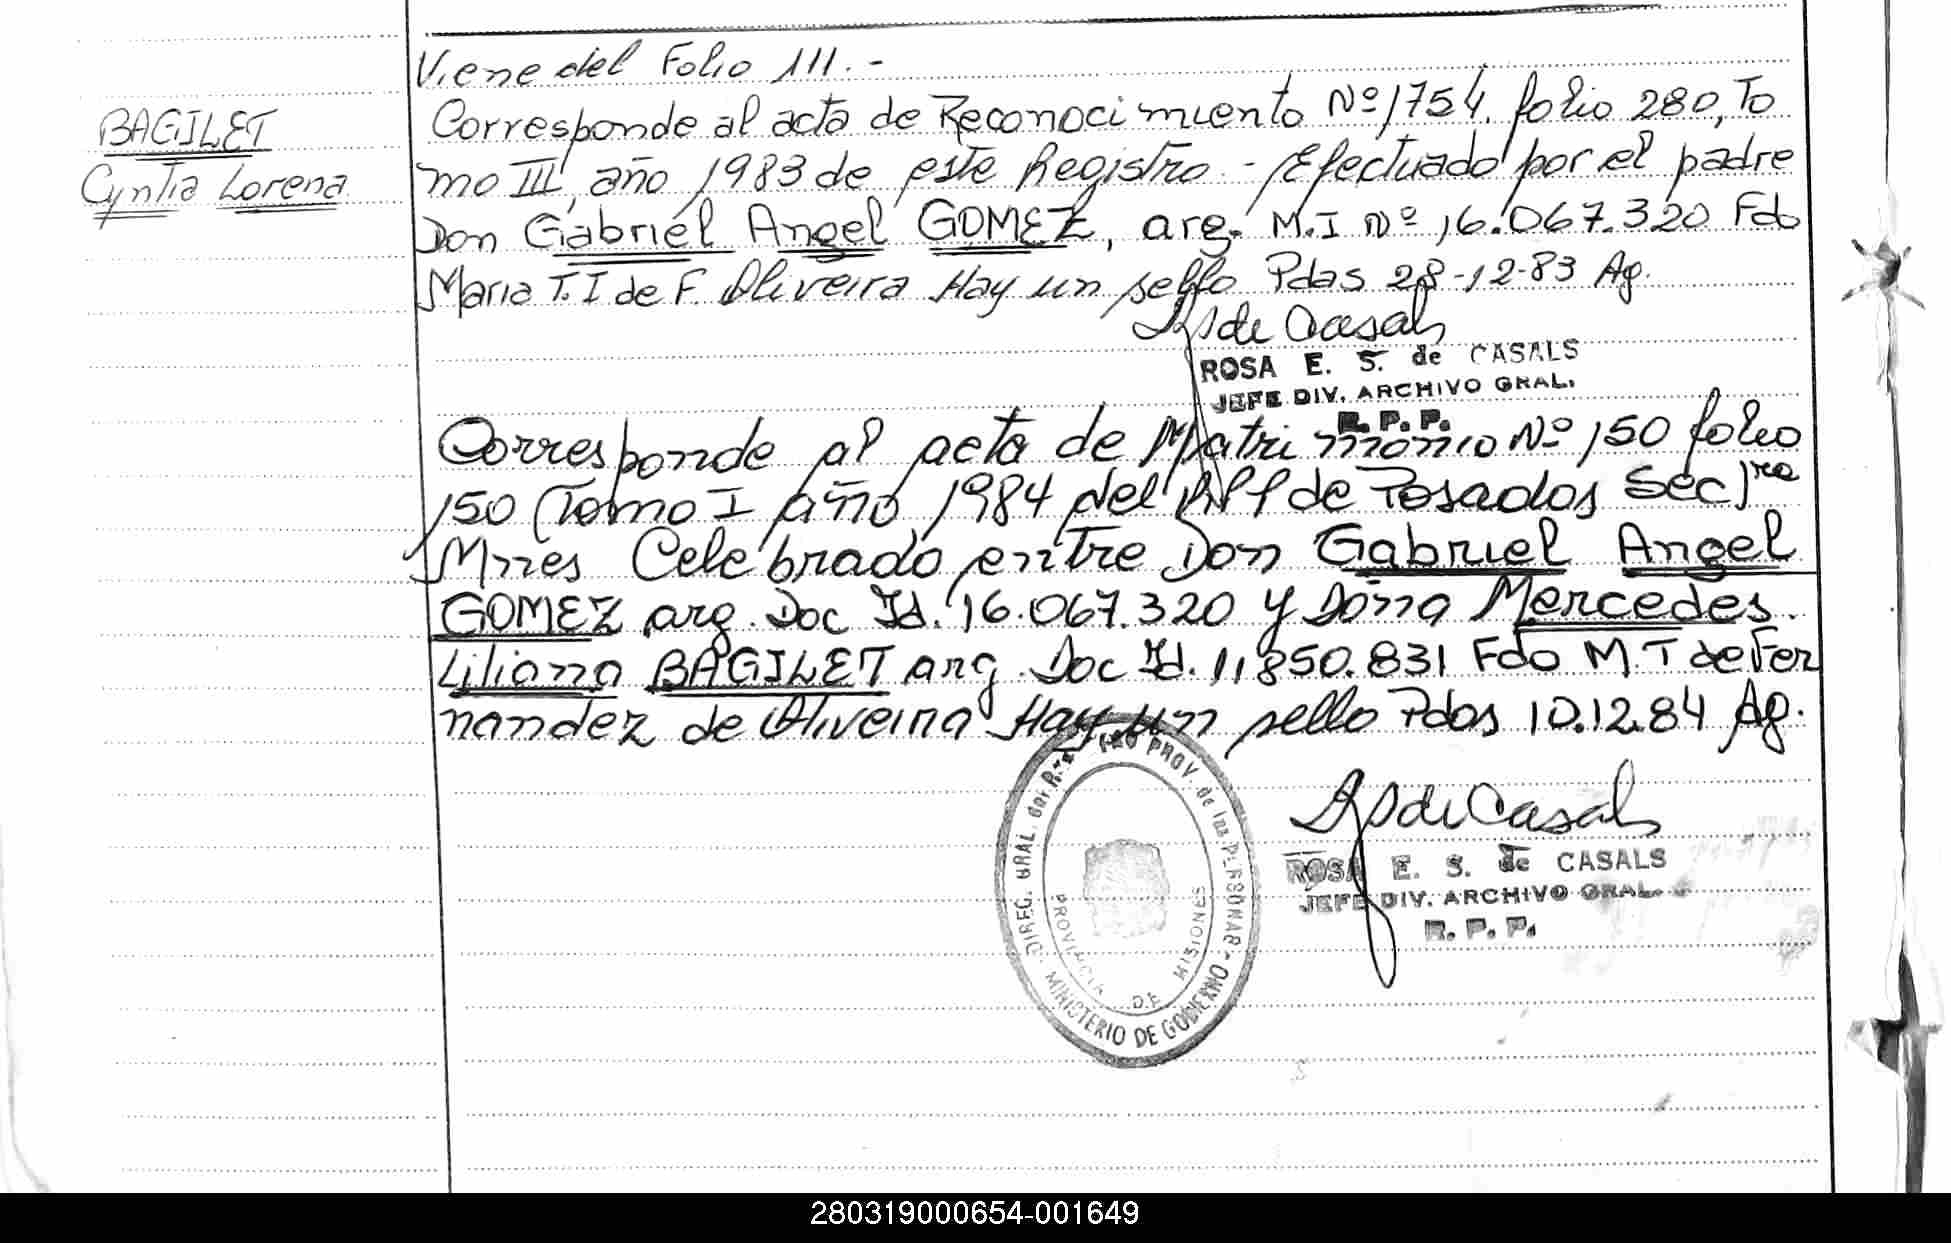 Viene del Folio 111.-
BAGILET
Cyntia Lorena
Corresponde al acta de Reconocimiento Nº 1754. folio 280, To
mo III, año 1983 de este Registro.- Efectuado por el padre
Don Gabriel Angel GOMEZ, arg. M.I Nº 16.067.320 Fdo
Maria T. I de F. Oliveira Hay un sello Pdas 28-12-83 Ag.
RSde Casals
ROSA E. S. de CASALS
JEFE DIV. ARCHIVO GRAL.
R. P. P.
Corresponde al acta de Matrimonio Nº 150 folio
150 Tomo I año 1984 del de Posadas Sec 1ra
Mnes Celebrado entre Don Gabriel Angel
GOMEZ arg. Doc Id. 16.067.320 y Doña Mercedes
Liliana BAGILET arg. Doc Id. 11.850.831 Fdo M.T de Fer
nandez de Oliveira Hay un sello Pdas 10.12.84 Ag.
RSde Casals
ROSA E. S. de CASALS
JEFE DIV. ARCHIVO GRAL.
R. P. P.
DIREC. GRAL. del PROV. de las PERSONAS
MINISTERIO DE GOBIERNO
PROVINCIA DE MISIONES
280319000654-001649